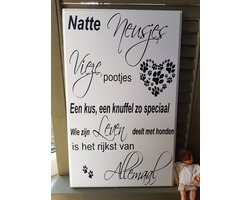 Natte Neusjes
Vieze pootjes
Een kus, een knuffel zo speciaal
Wie zijn Leven deelt met honden
is het rijkst van
Allemaal